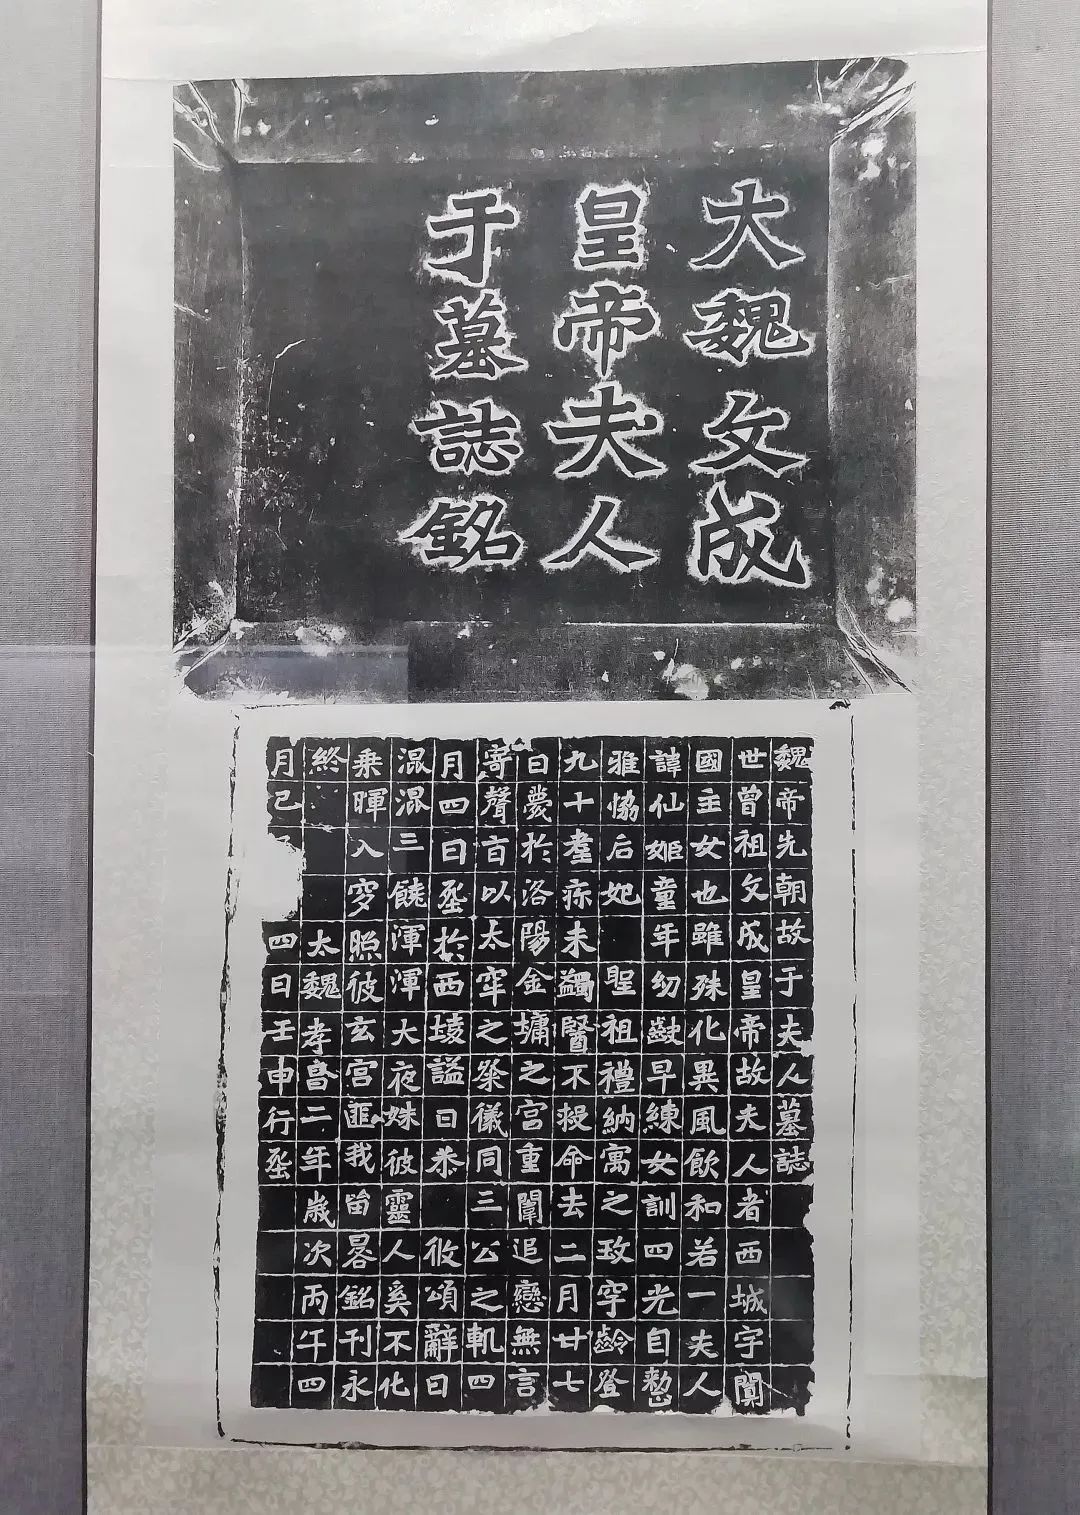 大魏文成
皇帝夫人
于墓誌銘
魏帝先朝故于夫人墓誌
世曾祖文成皇帝故夫人者西城宇闐
國主女也雖殊化異風飲和若一夫人
諱仙姬童年幼敭早練女訓四光自整
雅恊后妃聖祖禮納寓之玫宇齡登
九十耋疹未蠲醫不救命去二月廿七
日薨於洛陽金墉之宮重闈追戀無言
寄聲旨以太牢之祭儀同三公之軌四
月四日塟於西㙄謚曰恭攸頌辭曰
混混三饒渾渾大夜姝彼靈人奚不化
乘暉入穸照彼玄宮匪我留晷銘刊永
終太魏孝昌二年歲次丙午四
月己四日壬申行塟